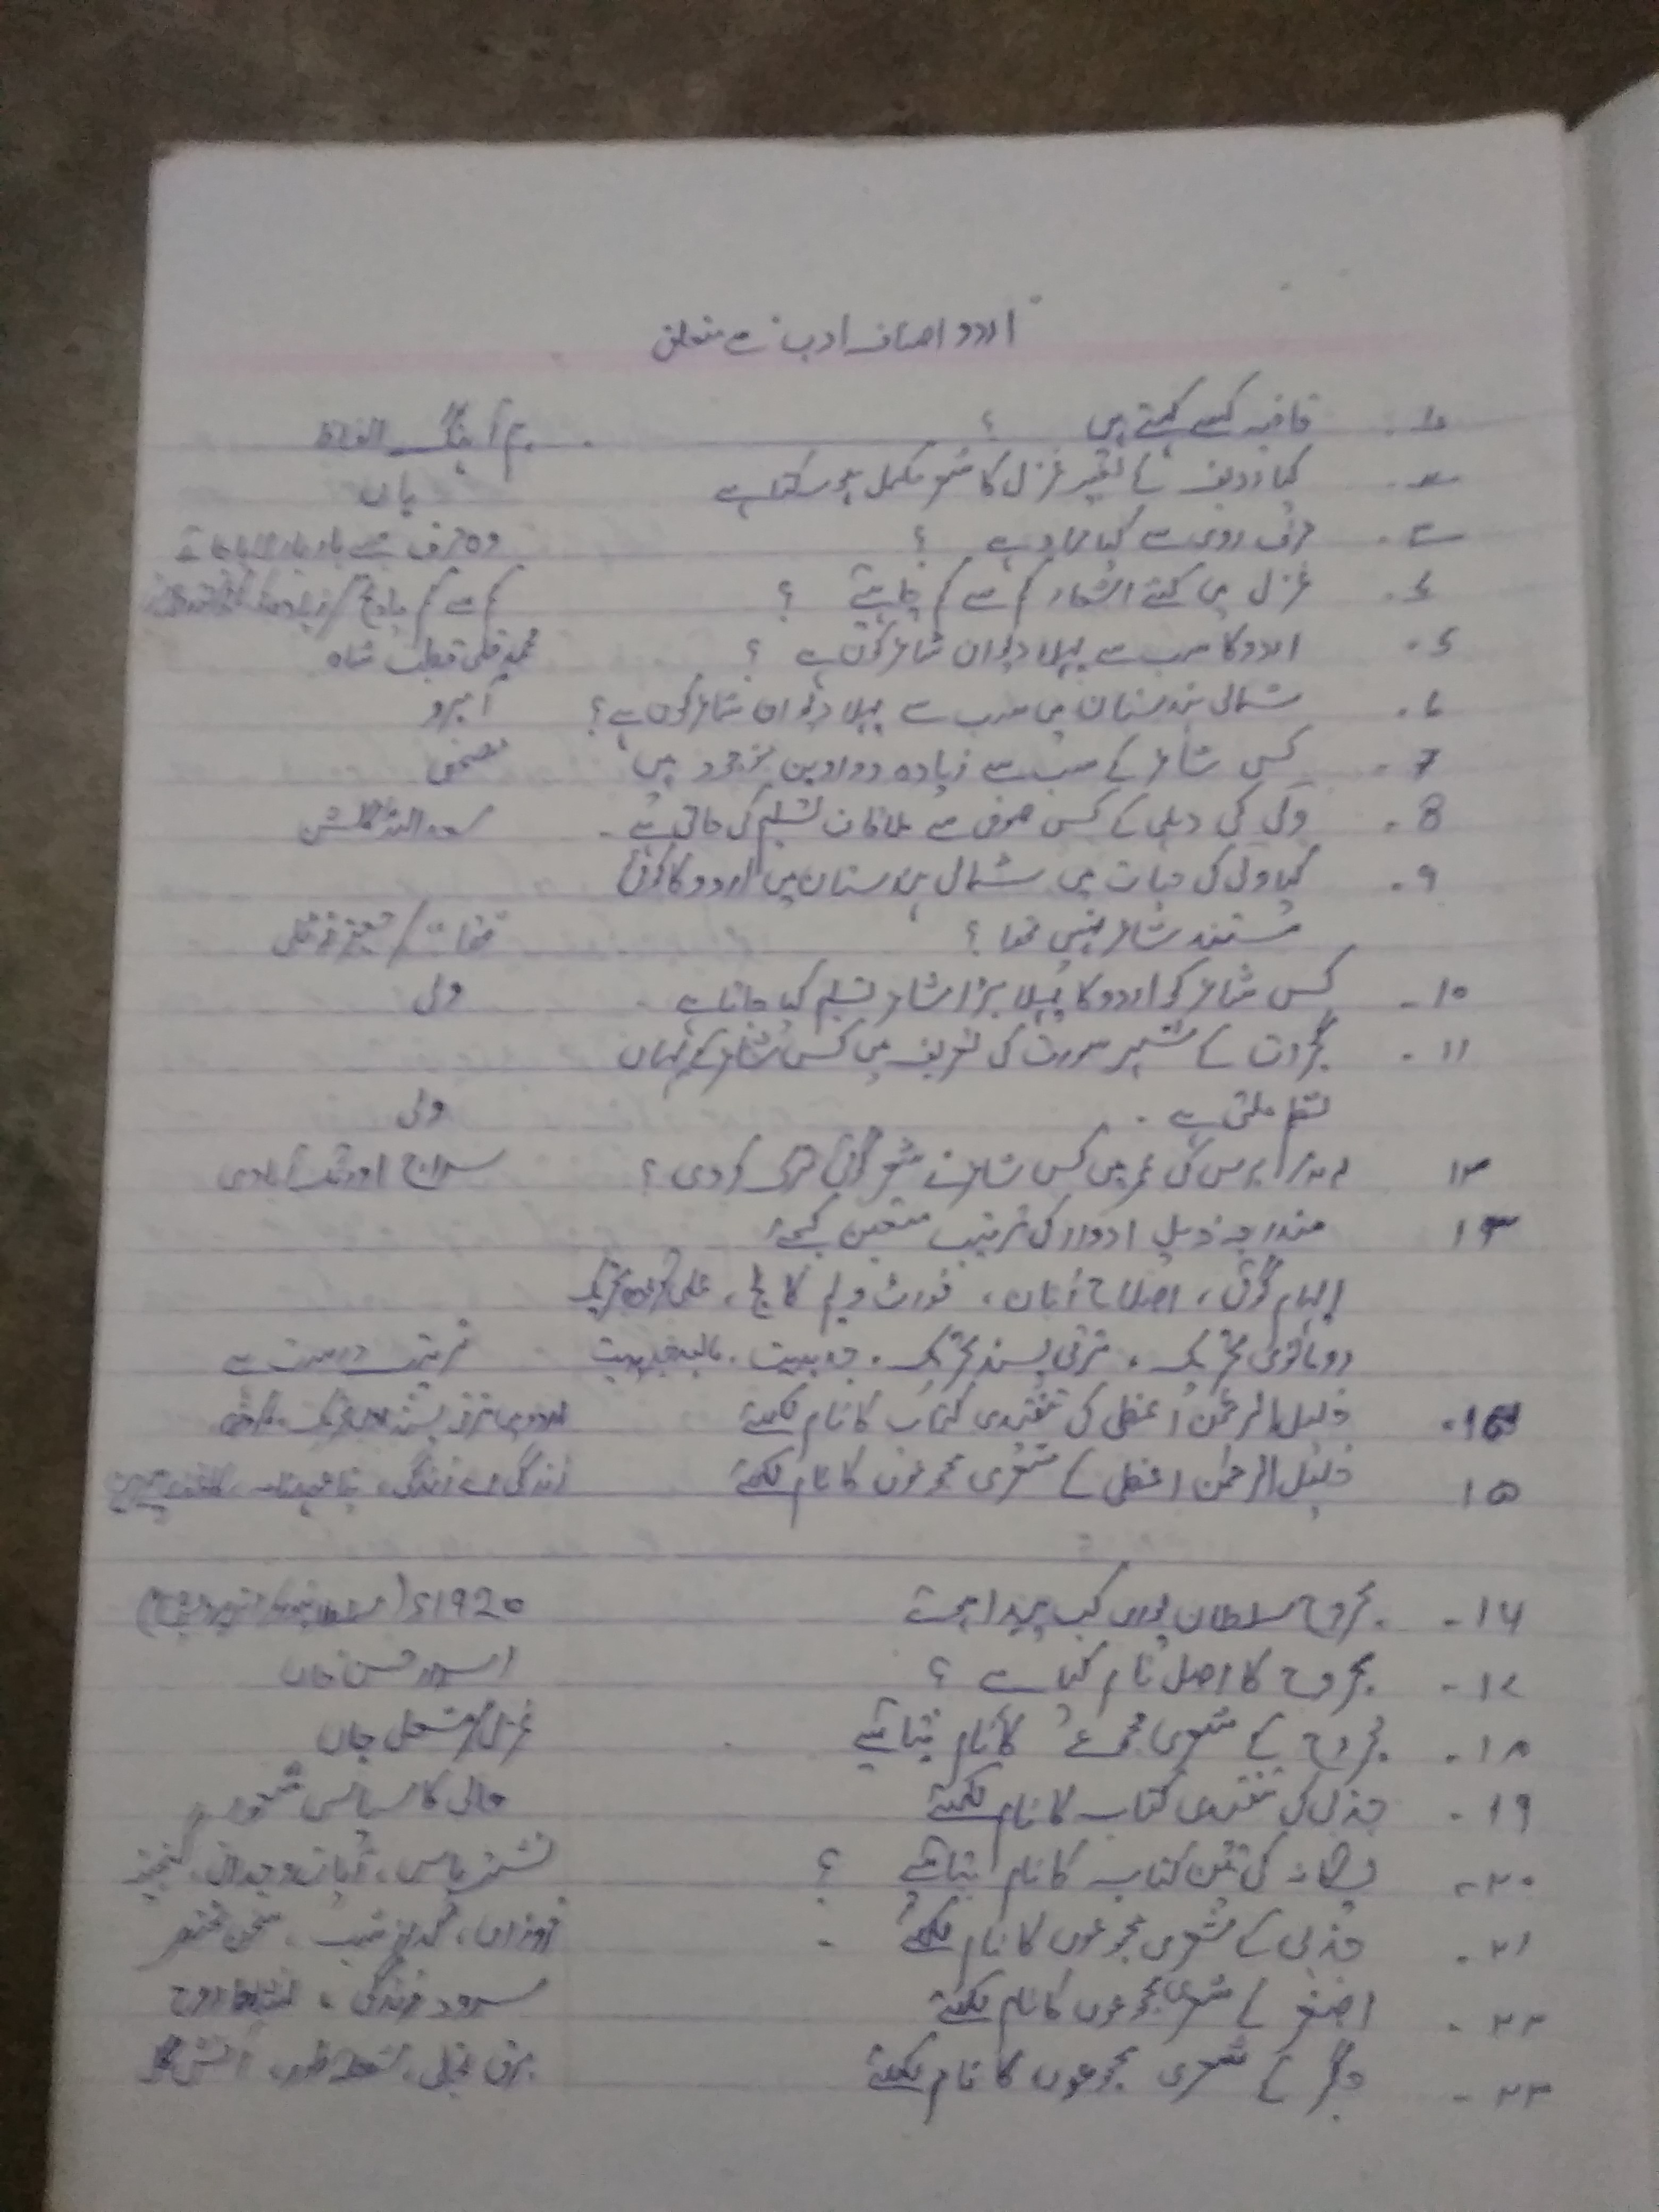 اردو اصناف ادب سے متعلق
۱۔ قافیہ کسے کہتے ہیں ؟ ہم آہنگ الفاظ
۲۔ کیا ردیف کے بغیر غزل کا شعر مکمل ہو سکتا ہے ہاں
۳۔ حرف روی سے کیا مراد ہے ؟ وہ حرف جسے بار بار لایا جائے
۴۔ غزل میں کتنے اشعار کم سے کم چاہیئے ؟ کم سے کم پانچ / زیادہ
5۔ اردو کا سب سے پہلا دیوان شاعر کون ہے ؟ محمد قلی قطب شاہ
۶۔ شمالی ہندستان میں سب سے پہلا دیوان شاعر کون ہے ؟ آبرو
7۔ کس شاعر کے سب سے زیادہ دواوین موجود ہیں مصحفی
8۔ ولی کی دہلی کے کس صوفی سے ملاقات تسلیم کی جاتی ہے ۔ سعد اللہ گلشن
9۔ کیا ولی کی حیات میں شمالی ہندستان میں اردو کا کوئی
مستند شاعر نہیں تھا ؟ جعفر زٹلی
۱۰۔ کس شاعر کو اردو کا پہلا بڑا شاعر تسلیم کیا جاتا ہے ۔ ولی
۱۱۔ گجرات کے شہر سورت کی تعریف میں کس شاعر کے یہاں
نظم ملتی ہے ۔ ولی
۱۲ برس کی عمر میں کس شاعر نے شعر گوئی ترک کر دی ؟ سراج اورنگ آبادی
۱۳ مندرجہ ذیل ادوار کی ترتیب متعین کیجئے
ایہام گوئی ، اصلاح زبان ، فورٹ ولیم کالج ، علی گڑھ تحریک
رومانوی تحریک ، ترقی پسند تحریک ۔ جدیدیت ۔ مابعد جدیدیت ترتیب درست ہے
خلیل الرحمٰن اعظمی کی تنقیدی کتاب کا نام لکھئے اردو میں ترقی پسند ادبی تحریک
۱۵ خلیل الرحمٰن اعظمی کے شعری مجموعوں کا نام لکھئے زندگی اے زندگی ، نیا عہد نامہ ، کاغذی پیرہن
۱۶۔ مجروح سلطان پوری کب پیدا ہوئے 1920ء
۱۷۔ مجروح کا اصل نام کیا ہے ؟ اسرار حسن خاں
۱۸۔ مجروح کے شعری مجموعے کا نام بتائیے غزل / مشعل جاں
۱۹۔ جذبی کی تنقیدی کتاب کا نام لکھئے حالی کا سیاسی شعور
۲۰۔ یگانہ کی تین کتاب کا نام بتائیے ؟ نشتر یاس ، آیات وجدانی ، گنجینہ
۲۱۔ جذبی کے شعری مجموعوں کا نام لکھئے ۔ فروزاں ، گداز شب ، سخن مختصر
۲۲۔ اصغر کے شعری مجموعوں کا نام لکھئے سرود زندگی ، نشاط روح
۲۳۔ جگر کے شعری مجموعوں کا نام لکھئے شعلہ طور ، آتش گل